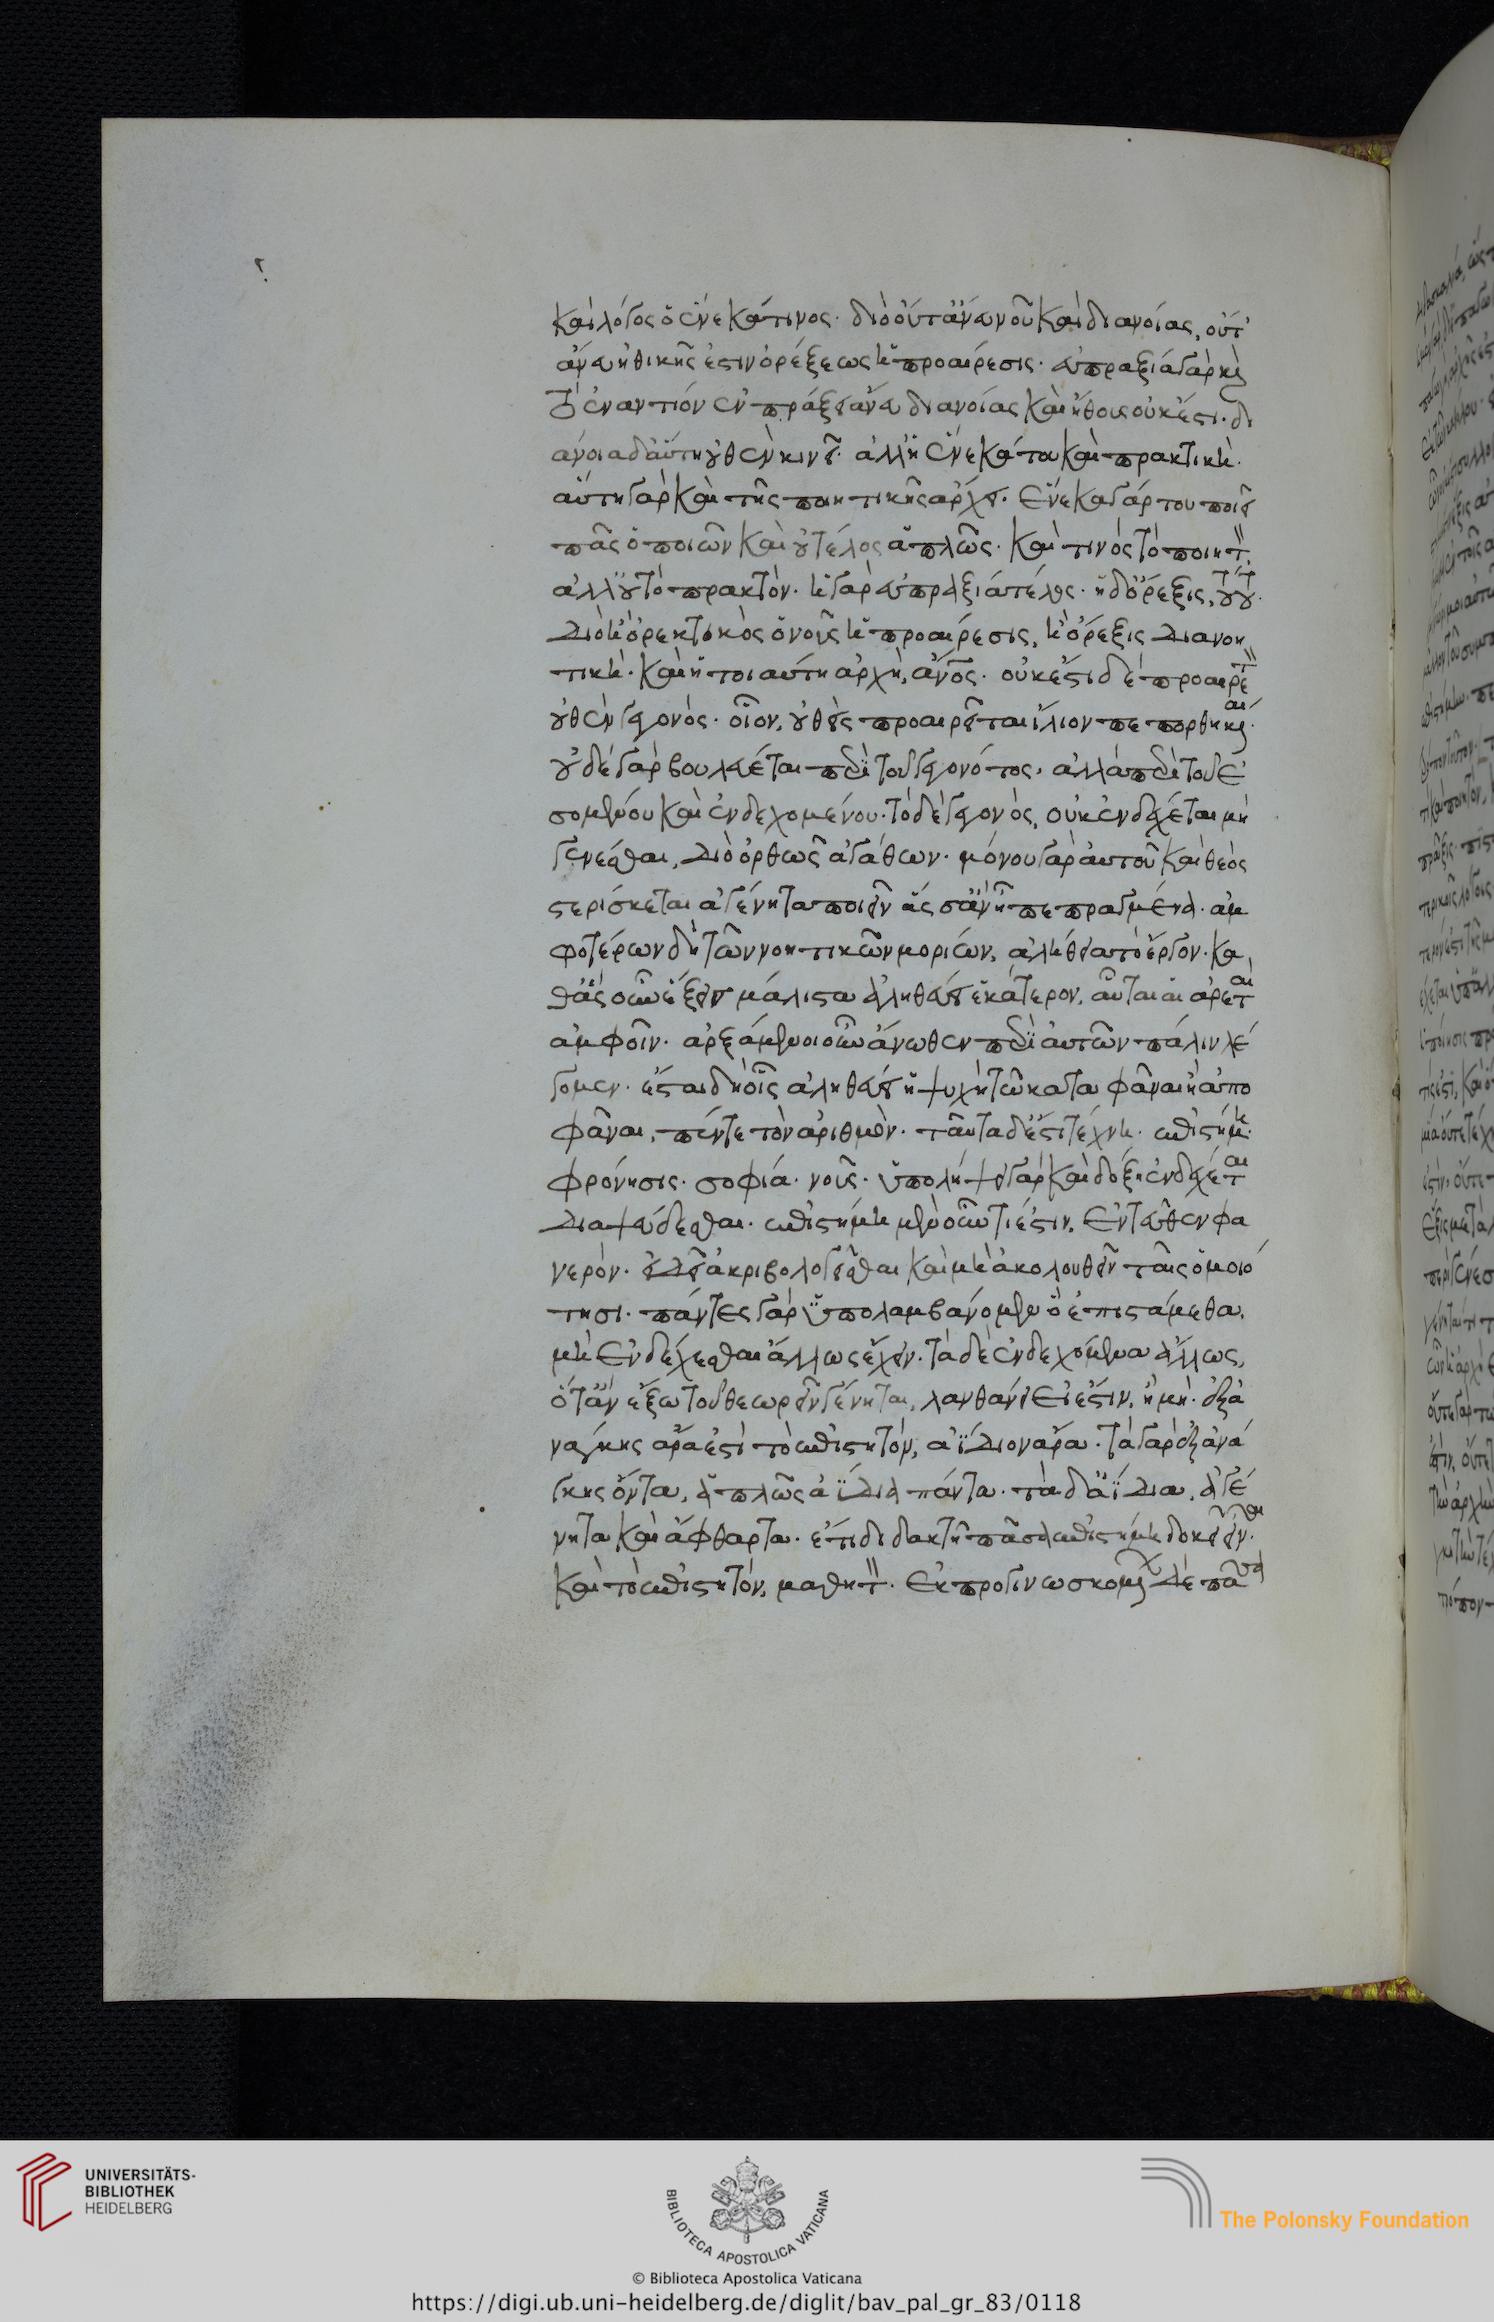 καὶ λόγος ὁ ἕνεκά τινος· διὸ οὔτ' ἄνευ νοῦ καὶ διανοίας, οὔτ'
ἄνευ ἠθικῆς ἐστὶν ὀρέξεως ἡ προαίρεσις· εὐπραξία γὰρ καὶ
τὸ ἐναντίον ἐν πράξει ἄνευ διανοίας καὶ ἤθους οὐκ ἔστι· δι
άνοια δ' αὐτὴ οὐθὲν κινεῖ· ἀλλ' ἡ ἕνεκά του καὶ πρακτική·
αὕτη γὰρ καὶ τῆς ποιητικῆς ἄρχει· ἕνεκα γάρ του ποιεῖ
πᾶς ὁ ποιῶν καὶ οὐ τέλος ἁπλῶς· καὶ τινός τὸ ποιητόν.
ἀλλ' οὐ τὸ πρακτόν· ἡ γὰρ εὐπραξία τέλος· ἡ δ' ὄρεξις, τούτου·
διὸ ἢ ὀρεκτικὸς ὁ νοῦς ἡ προαίρεσις, ἢ ὄρεξις διανοη
τική· καὶ ἡ τοιαύτη ἀρχὴ, ἄνος· οὐκ ἔστι δὲ προαιρετὸν
οὐθὲν γεγονός· οἷον, οὐθεὶς προαιρεῖται ἴλιον πεπορθηκέναι·
οὐδὲ γὰρ βουλεύεται περὶ τοῦ γεγονότος, ἀλλὰ περὶ τοῦ ἐ
σομένου καὶ ἐνδεχομένου· τὸ δὲ γεγονὸς, οὐκ ἐνδέχεται μὴ
γενέσθαι, διὸ ὀρθῶς ἀγάθων· μόνου γὰρ αὐτοῦ καὶ θεὸς
στερίσκεται ἀγένητα ποιεῖν ἅσσ' ἂν ᾖ πεπραγμένα· ἀμ
φοτέρων δὴ τῶν νοητικῶν μορίων, ἀλήθεια τὸ ἔργον· κα
θ' ἃς οὖν ἕξεις μάλιστα ἀληθεύσει ἑκάτερον, αὗται αἱ ἀρεταὶ
ἀμφοῖν· ἀρξάμενοι οὖν ἄνωθεν περὶ αὐτῶν πάλιν λέ
γομεν· ἔσται δὴ οἷς ἀληθεύει ἡ ψυχὴ τῶ κατα φᾶναι ἢ ἀπο
φᾶναι, πέντε τὸν ἀριθμὸν· ταῦτα δ' ἐστὶ τέχνη· ἐπιστήμη·
φρόνησις· σοφία· νοῦς· ὑπολήψει γὰρ καὶ δόξῃ ἐνδέχεται
διαψεύδεσθαι· ἐπιστήμη μὲν οὖν τί ἐστιν, ἐντεῦθεν φα
νερόν· εἰ δεῖ ἀκριβολογεῖσθαι καὶ μὴ ἀκολουθεῖν ταῖς ὁμοιό
τησι· πάντες γὰρ ὑπολαμβάνομεν ὃ ἐπιστάμεθα,
μὴ ἐνδέχεσθαι ἄλλως ἔχειν· τὰ δὲ ἐνδεχόμενα ἄλλως,
ὅταν ἔξω τοῦ θεωρεῖν γένηται, λανθάνει εἰ ἔστιν, ἢ μὴ· ἐξ ἀ
νάγκης ἄρα ἐστὶ τὸ ἐπιστητόν, ἀΐδιον ἄρα· τὰ γὰρ ἐξ ἀνά
γκης ὄντα, ἁπλῶς ἀΐδια πάντα· τὰ δ' ἀΐδια, ἀγέ
νητα καὶ ἄφθαρτα· ἔτι διδακτὴ πᾶσα ἐπιστήμη δοκεῖ εἶναι·
καὶ τὸ ἐπιστητόν, μαθητόν· ἐκ προγινωσκομένων δὲ πᾶσα
UNIVERSITÄTS-
BIBLIOTHEK
HEIDELBERG
BIBLIOTECA APOSTOLICA VATICANA
The Polonsky Foundation
© Biblioteca Apostolica Vaticana
https://digi.ub.uni-heidelberg.de/diglit/bav_pal_gr_83/0118